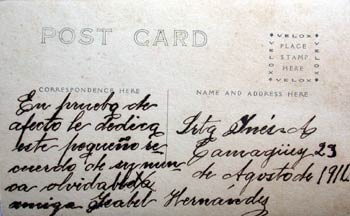 POST CARD
VELOX
PLACE
STAMP
HERE
VELOX
CORRESPONDENCE HERE
NAME AND ADDRESS HERE
En prueba de
afecto le dedica
este pequeño re
cuerdo de su nun
ca olvidada
amiga Isabel Hernández
Srta Inés A
Camagüey 23
de Agosto de 1911.